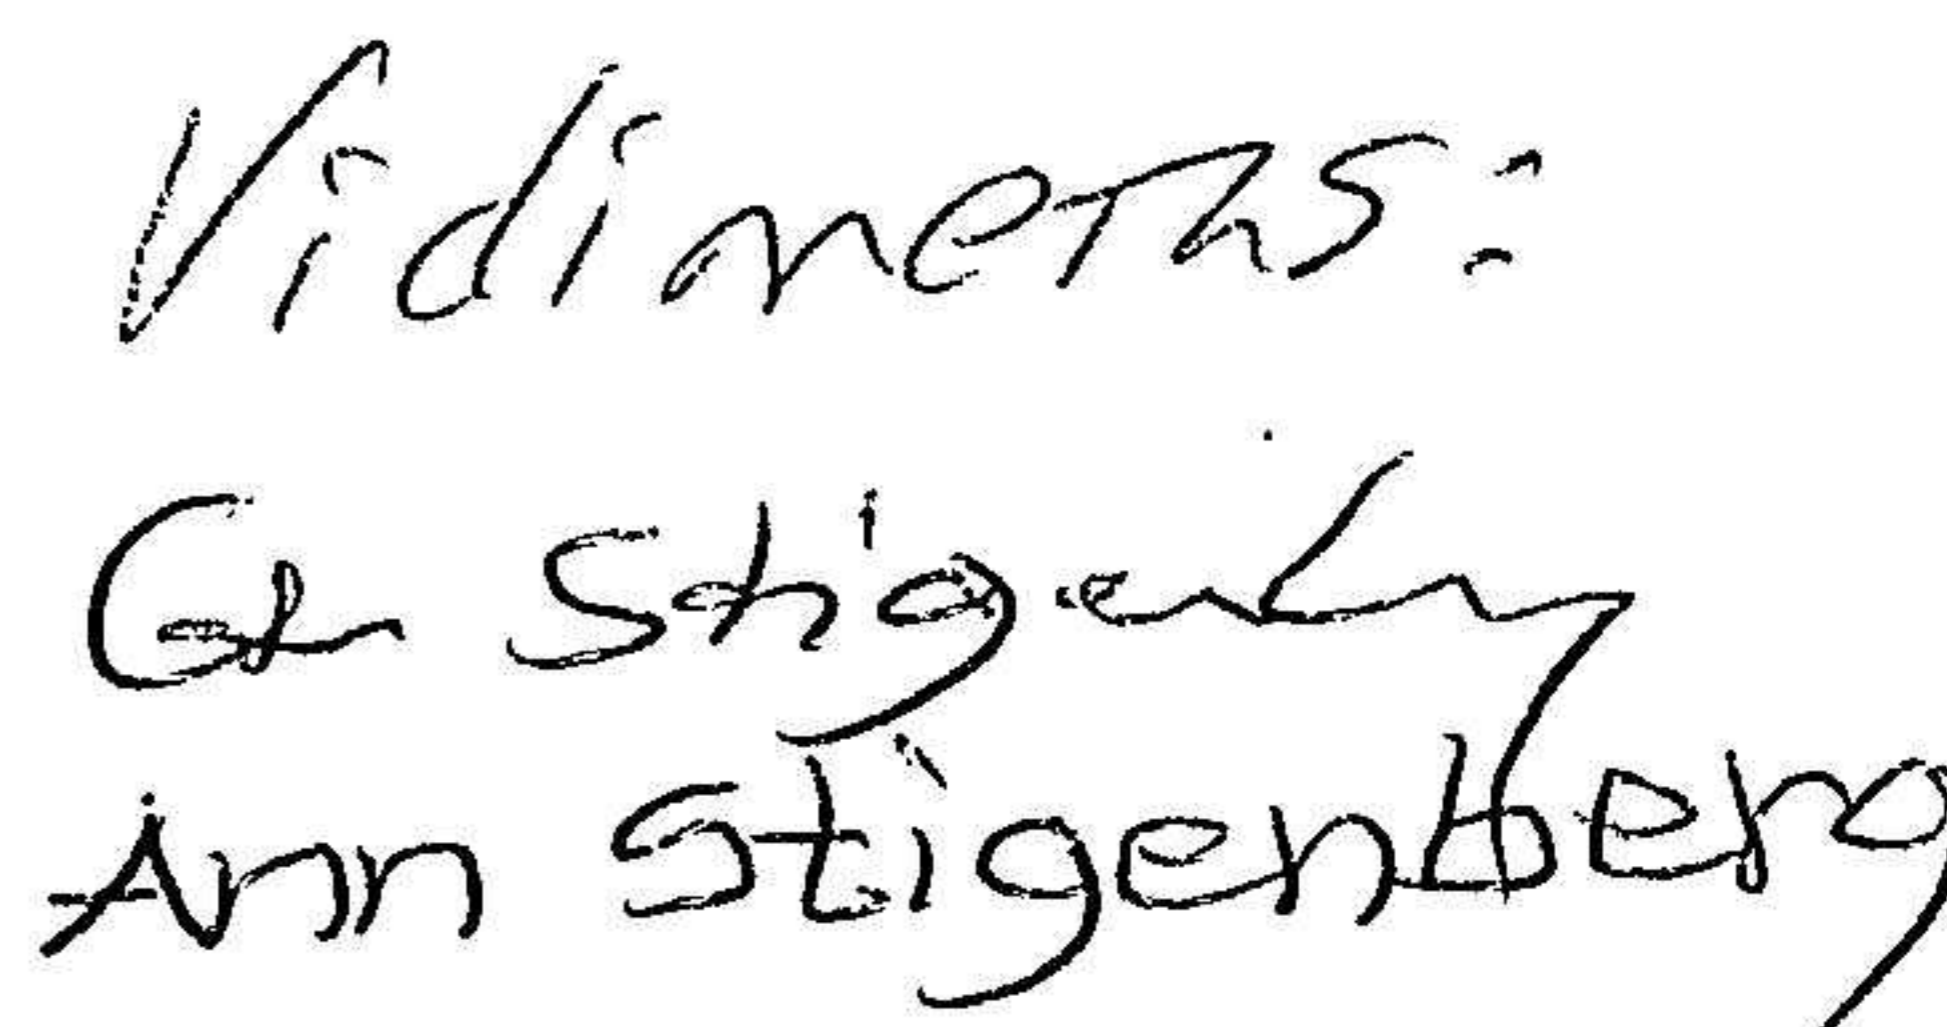 Vidimeras:
Stigenberg
Ann Stigenberg